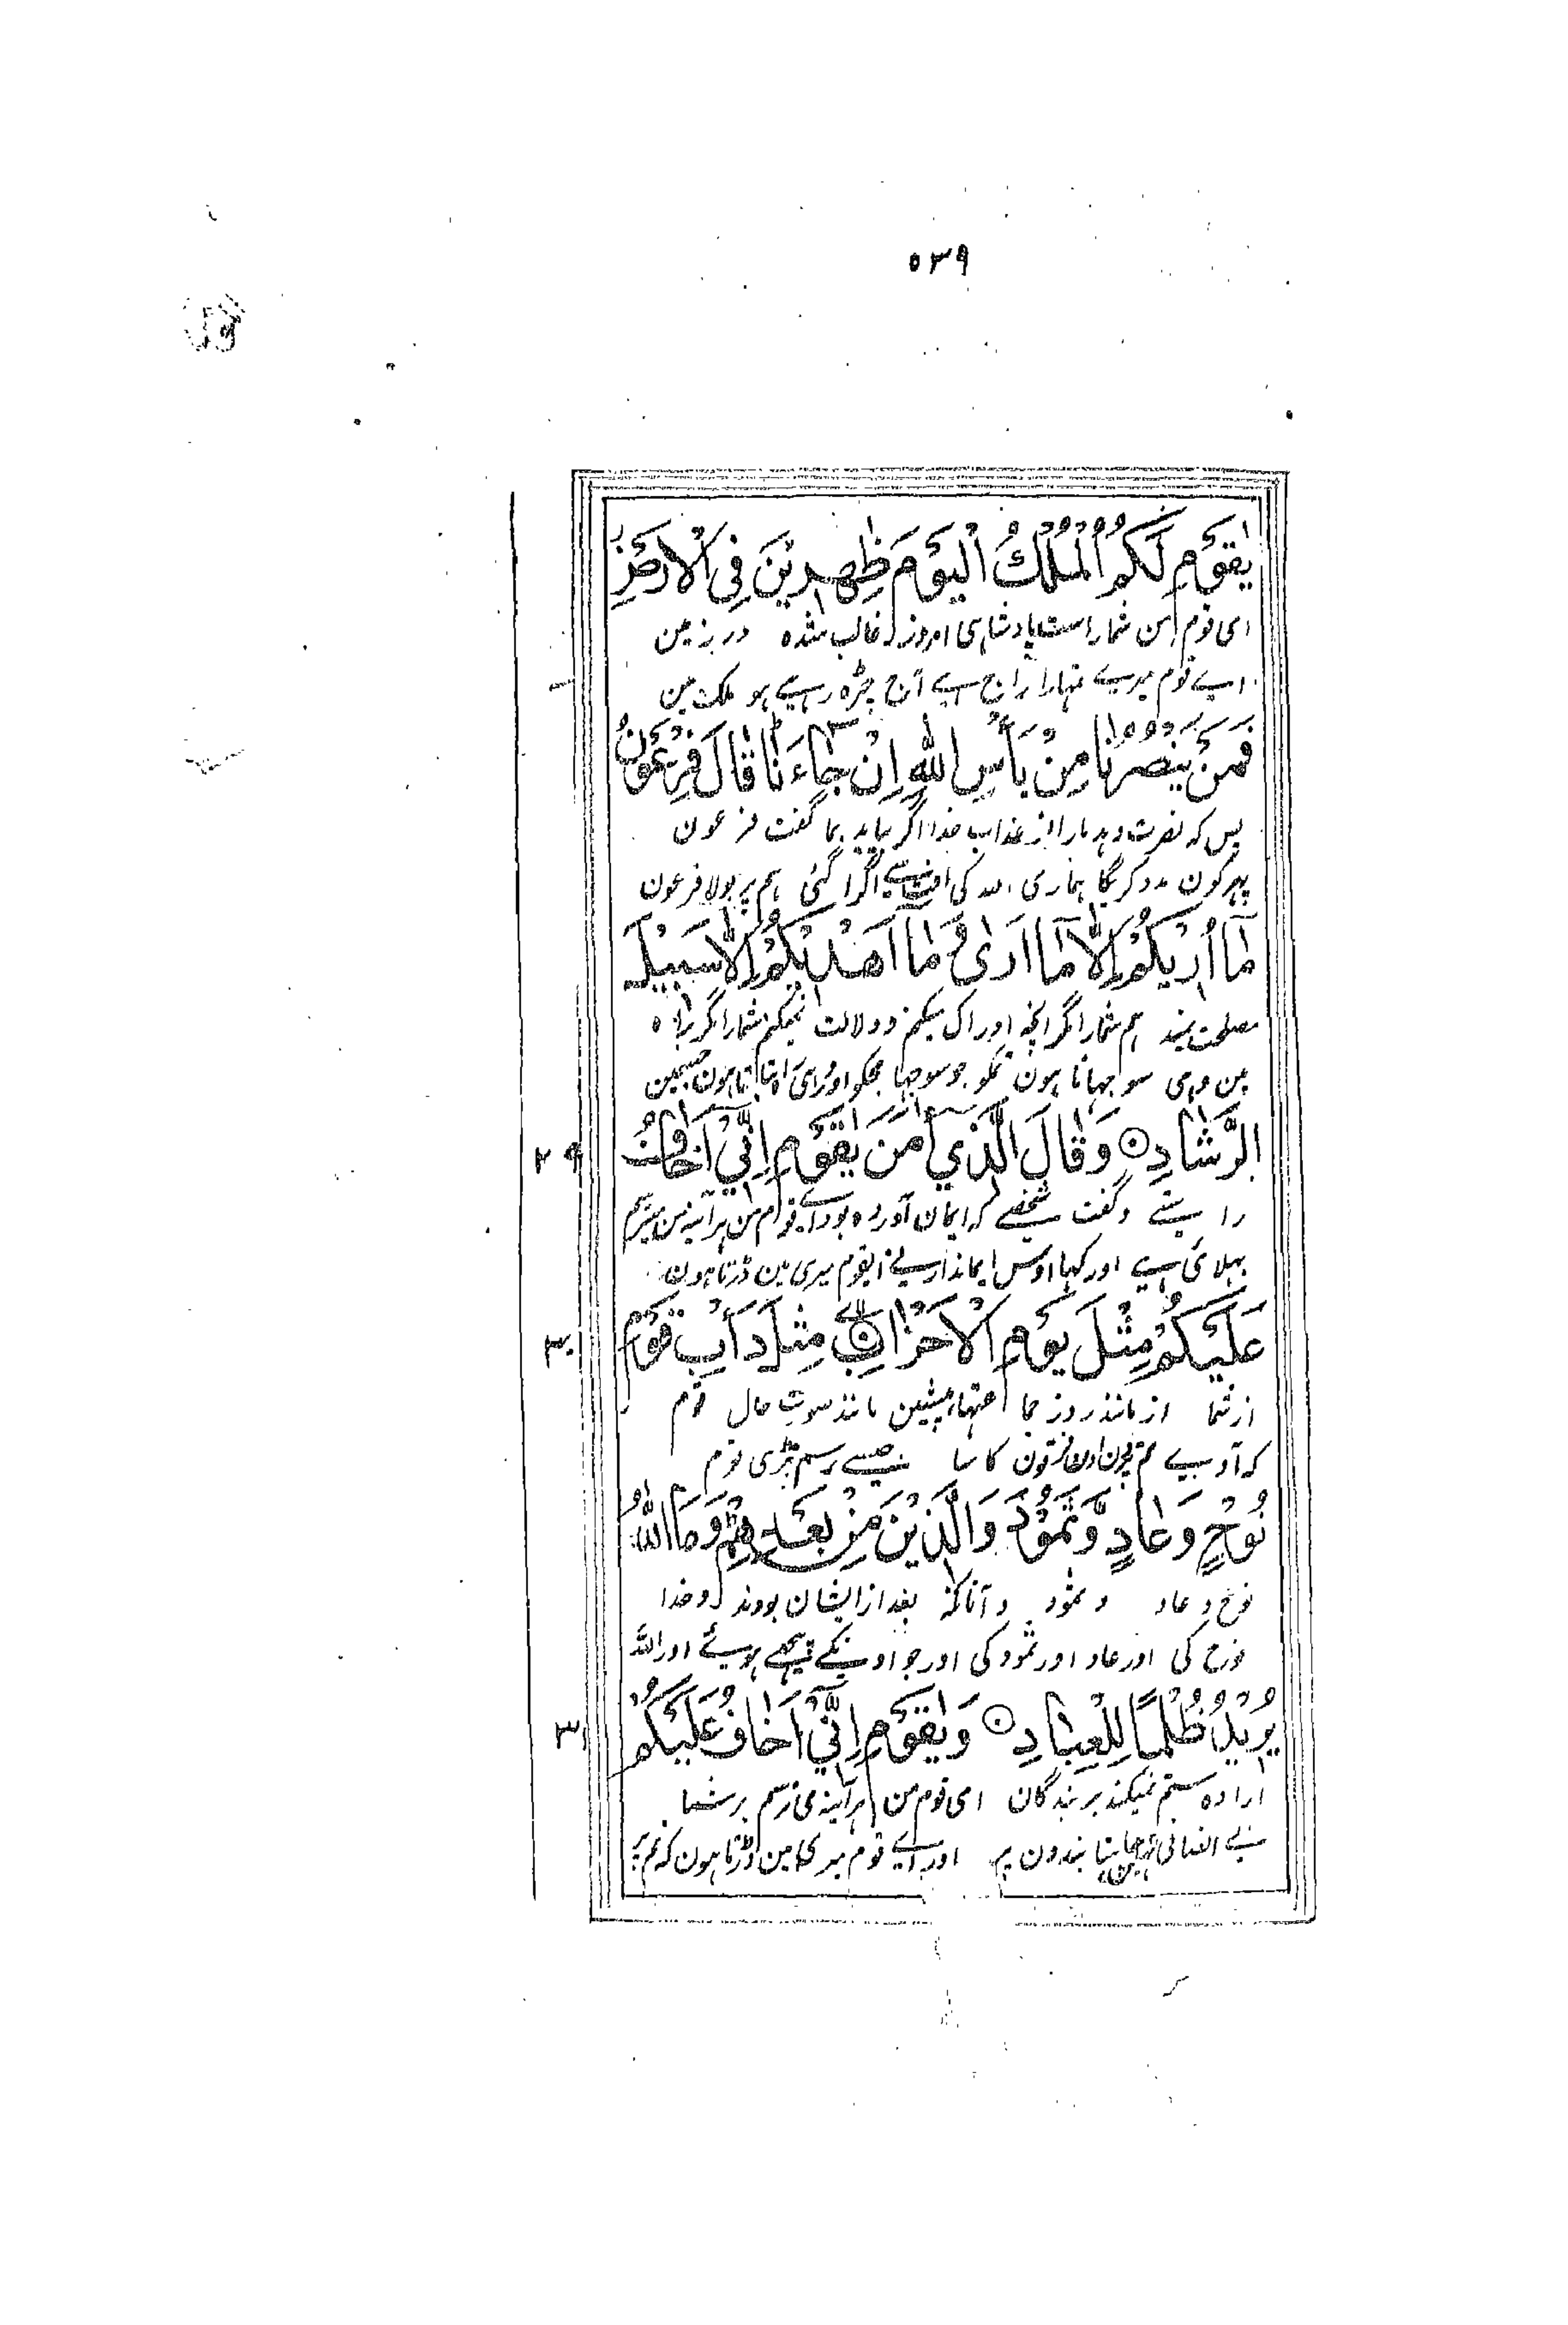 ٥٣٩
يٰقَوْمِ لَكُمُ الْمُلْكُ الْيَوْمَ ظٰهِرِيْنَ فِى الْاَرْضِ
ای قوم من شمار است پادشاہی امروز غالب شدہ در زمین
اے قوم میرے تمہارا راج ہے آج چڑہ رہے ہو ملک مین
فَمَنْ يَّنْصُرُنَا مِنْ بَأْسِ اللّٰهِ اِنْ جَآءَنَا قَالَ فِرْعَوْنُ
پس کہ نصرت دہد مارا از عذاب خدا اگر بیاید بما گفت فرعون
پہر کون مدد کریگا ہماری اللہ کی آفت سے اگر آگئی ہم پر بولا فرعون
مَآ اُرِيْكُمْ اِلَّا مَآ اَرٰى وَمَآ اَهْدِيْكُمْ اِلَّا سَبِيْلَ
مصلحت شمارا مگر آنچہ ادراک میکنم و دلالت نمیکنم شمارا مگر براہ
مین وہی سوجہاتا ہون تمکو جو سوجہا مجکو اور وہی راہ بتاتا ہون جسمین
الرَّشَادِ ۝ وَقَالَ الَّذِيْٓ اٰمَنَ يٰقَوْمِ اِنِّيْٓ اَخَافُ
٢٩
راستے و گفت شخصے کہ ایمان آوردہ بود اے قوم من ہر آینہ من میترسم
بہلائی ہے اور کہا اوس ایماندار نے ایقوم میری مین ڈرتا ہون
عَلَيْكُمْ مِثْلَ يَوْمِ الْاَحْزَابِ ۝ مِثْلَ دَأْبِ قَوْمِ
٣٠
از شما از مانند روز جماعتہاے پیشین مانند صورت حال قوم
کہ آوے تم پر دن اون فرقون کا سا جیسے رسم پڑی قوم
نُوْحٍ وَّعَادٍ وَّثَمُوْدَ وَالَّذِيْنَ مِنْ بَعْدِهِمْ وَمَا اللّٰهُ
نوح و عاد و ثمود و آنانکہ بعد از ایشان بودند و خدا
نوح کی اور عاد اور ثمود کی اور جو اونکے پیچھے ہوئے اور اللّٰہ
يُرِيْدُ ظُلْمًا لِّلْعِبَادِ ۝ وَيٰقَوْمِ اِنِّيْٓ اَخَافُ عَلَيْكُمْ
٣١
ارادہ ستم نمیکند بر بندگان ای قوم من ہر آینہ می ترسم بر شما
بے انصافی نہین چاہتا بندون پر اور اے قوم میری مین ڈرتا ہون کہ تم پر